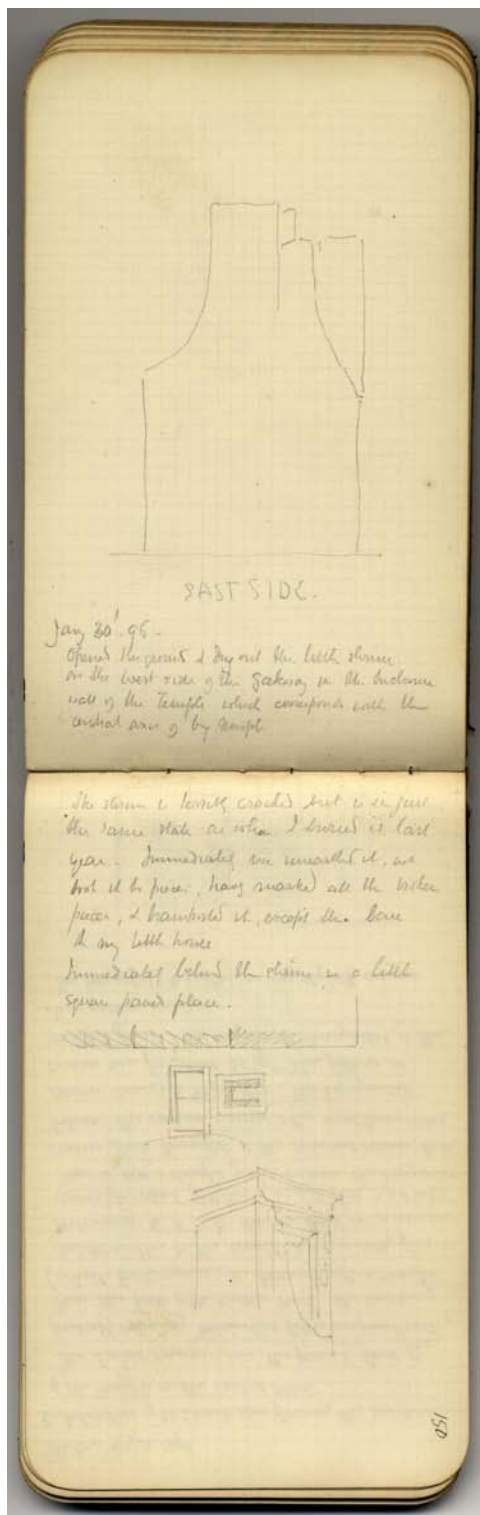 EAST SIDE.
Jany 30'. 96.
Opened the ground & dug out the little shrine
on the west side of the gateway in the Enclosure
wall of the Temple which corresponds with the
central axis of by Temple
The shrine is terribly cracked but is in just
the same state as when I buried it last
year. Immediately we unearthed it, we
took it to pieces, having marked all the broken
pieces, & transported it, except the base
to my little house
Immediately behind the shrine is a little
square paved place.
150